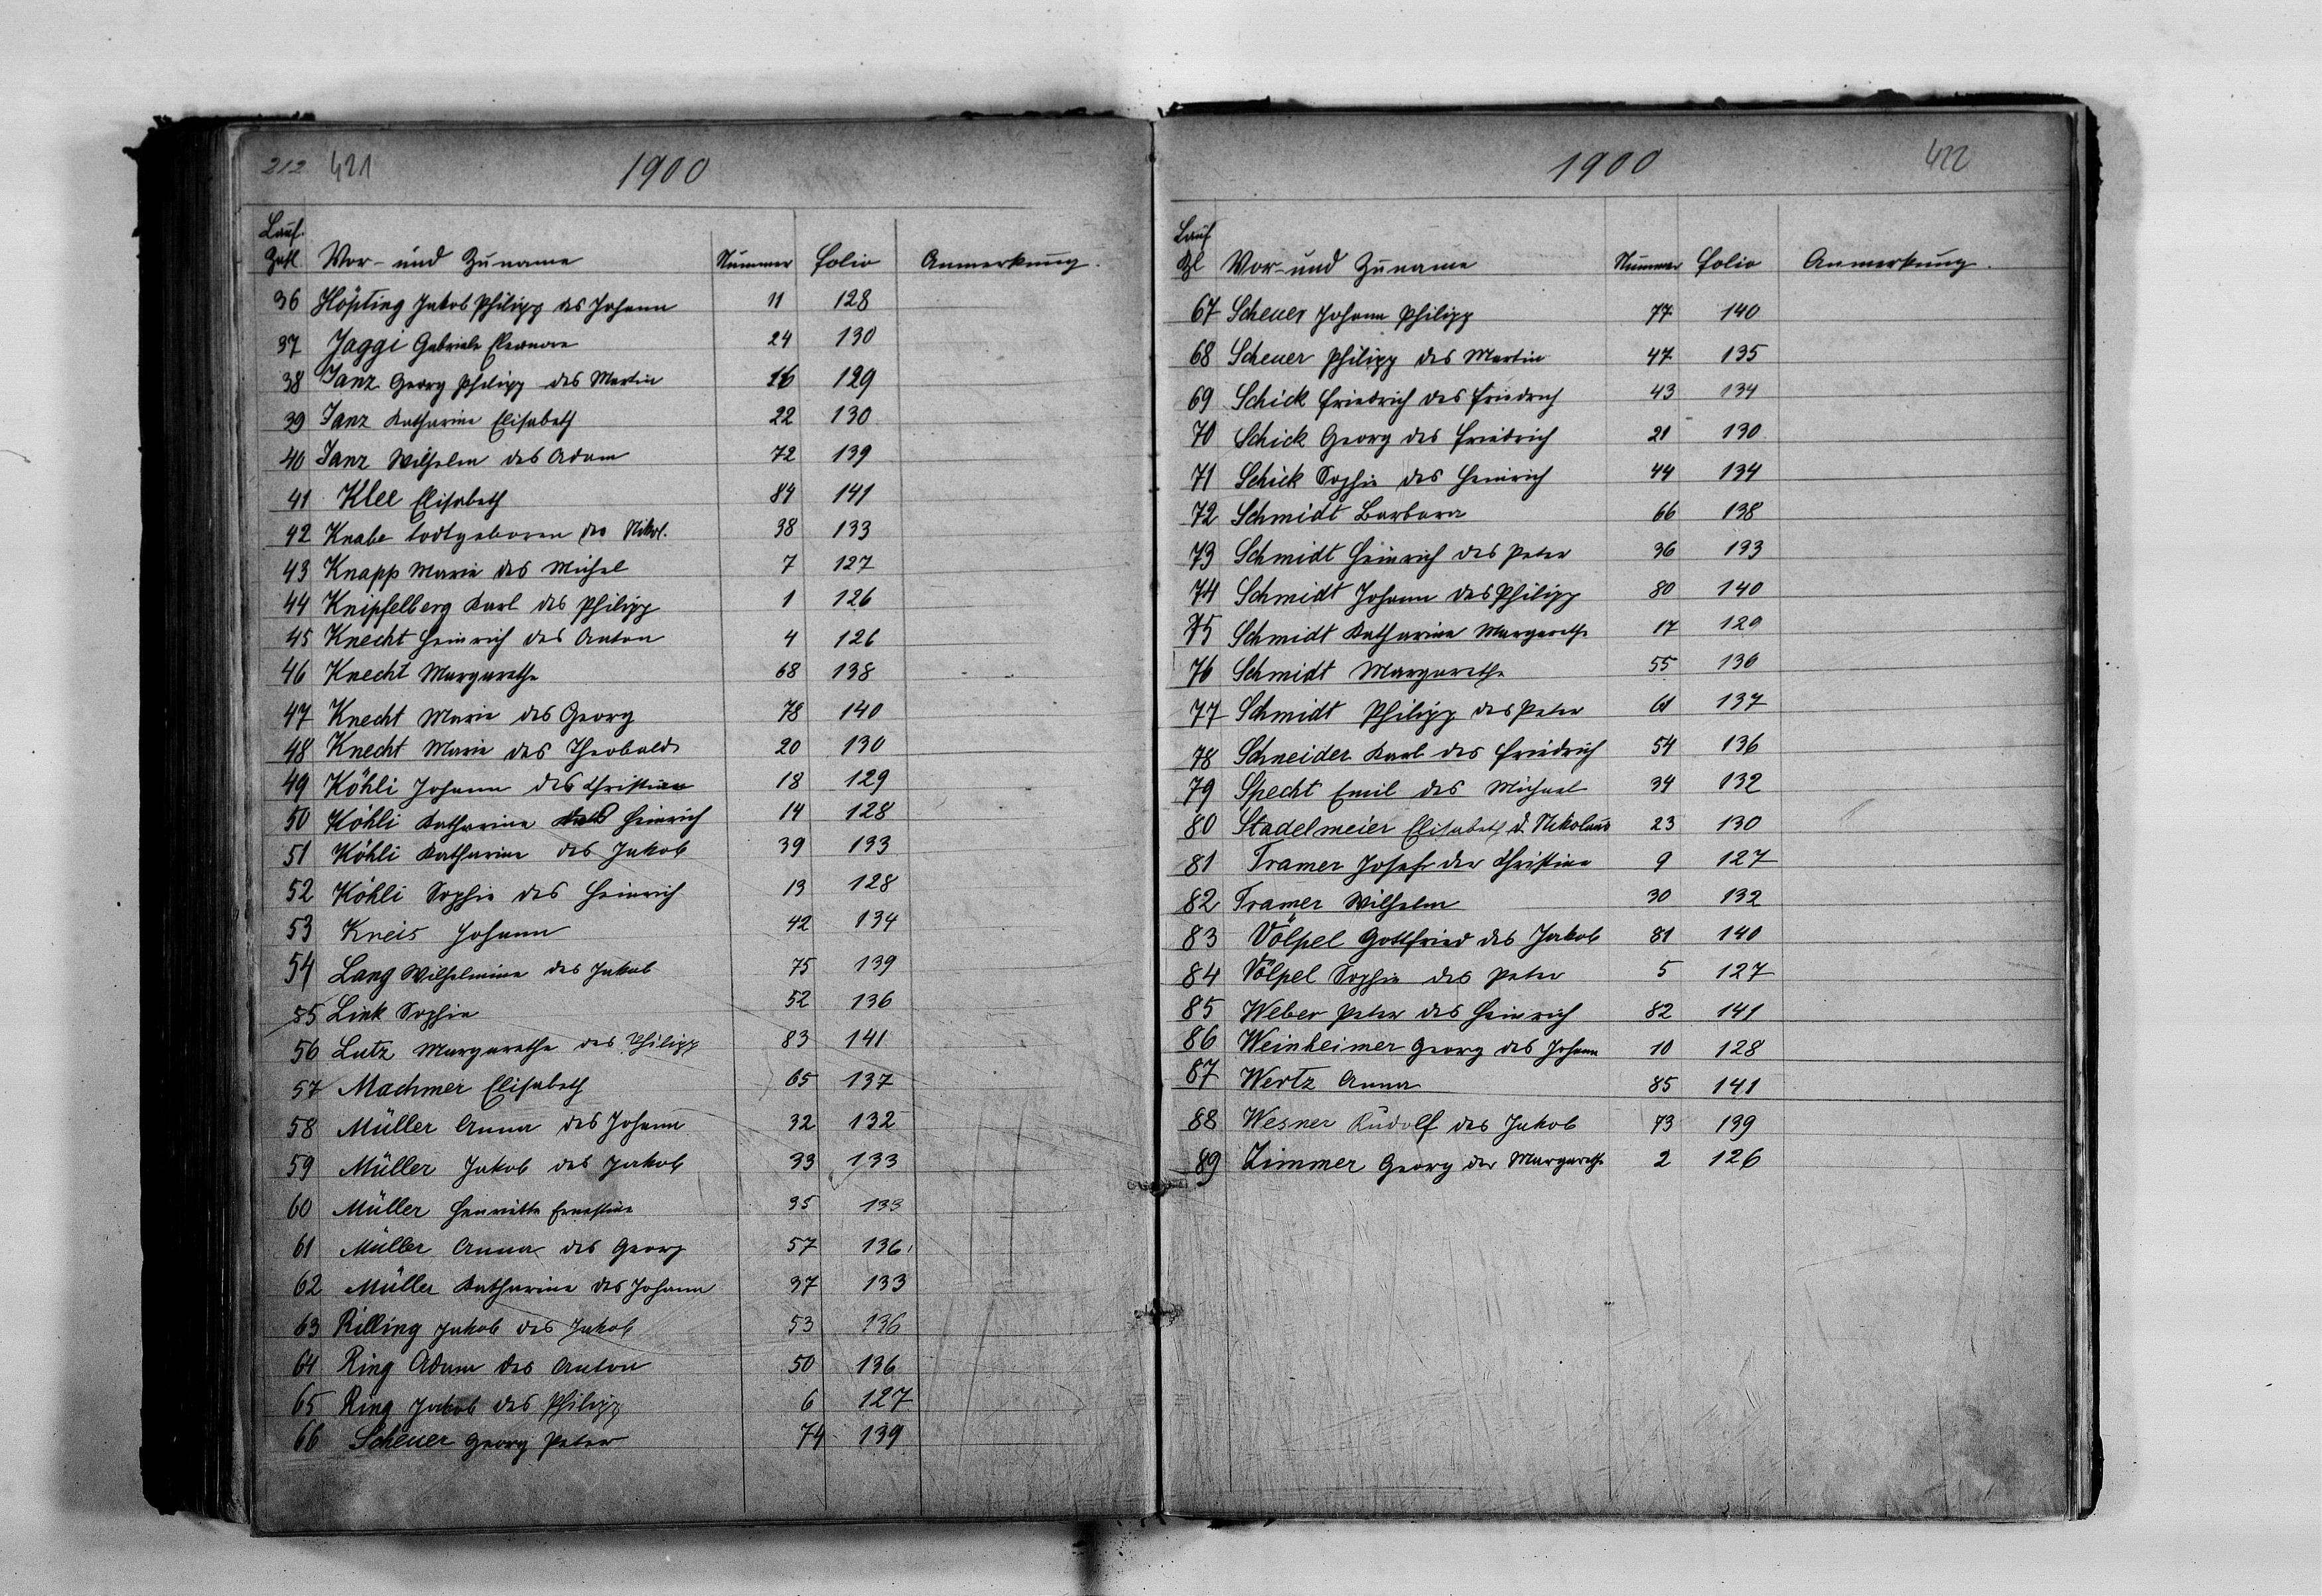 212 421 1900
Lauf.
Zahl Vor- und Zuname Nummer Folio Anmerkung.
36 Höpting Jakob Philipp des Johann 11 128
37 Jaggi Gabriele Eleonore 24 130
38 Janz Georg Philipp des Martin 16 129
39 Janz Katharine Elisabeth 22 130
40 Janz Wilhelm des Adam 72 139
41 Klee Elisabeth 84 141
42 Knabe todtgeboren des Nikol. 38 133
43 Knapp Marie des Michel 7 127
44 Knipfelberg Karl des Philipp 1 126
45 Knecht Heinrich des Anton 4 126
46 Knecht Margarethe 68 138
47 Knecht Marie des Georg 78 140
48 Knecht Marie des Theobald 20 130
49 Köhli Johann des Christian 18 129
50 Köhli Katharine des Heinrich 14 128
51 Köhli Katharine des Jakob 39 133
52 Köhli Sophie des Heinrich 13 128
53 Kneis Johann 42 134
54 Lang Wilhelmine des Jakob 75 139
55 Link Sophie 52 136
56 Lutz Margarethe des Philipp 83 141
57 Machmer Elisabeth 65 137
58 Müller Anna des Johann 32 132
59 Müller Jakob des Jakob 33 133
60 Müller Henriette Ernestine 35 133
61 Müller Anna des Georg 57 136
62 Müller Katharine des Johann 37 133
63 Rilling Jakob des Jakob 53 136
64 Ring Adam des Anton 50 136
65 Ring Jakob des Philipp 6 127
66 Scheuer Georg Peter 74 139
1900 422
Lauf
Zl Vor- und Zuname Nummer Folio Anmerkung.
67 Scheuer Johann Philipp 77 140
68 Scheuer Philipp des Martin 47 135
69 Schick Friedrich des Friedrich 43 134
70 Schick Georg des Friedrich 21 130
71 Schick Sophie des Heinrich 44 134
72 Schmidt Barbara 66 138
73 Schmidt Heinrich des Peter 36 133
74 Schmidt Johann des Philipp 80 140
75 Schmidt Katharine Margarethe 17 129
76 Schmidt Margarethe 55 136
77 Schmidt Philipp des Peter 61 137
78 Schneider Karl des Friedrich 54 136
79 Specht Emil des Michael 34 132
80 Stadelmeier Elisabeth d. Nikolaus 23 130
81 Tramer Josef der Christine 9 127
82 Tramer Wilhelm 30 132
83 Völpel Gottfried des Jakob 81 140
84 Völpel Sophie des Peter 5 127
85 Weber Peter des Heinrich 82 141
86 Weinheimer Georg des Johann 10 128
87 Wertz Anna 85 141
88 Wesner Rudolf des Jakob 73 139
89 Zimmer Georg der Margarethe 2 126